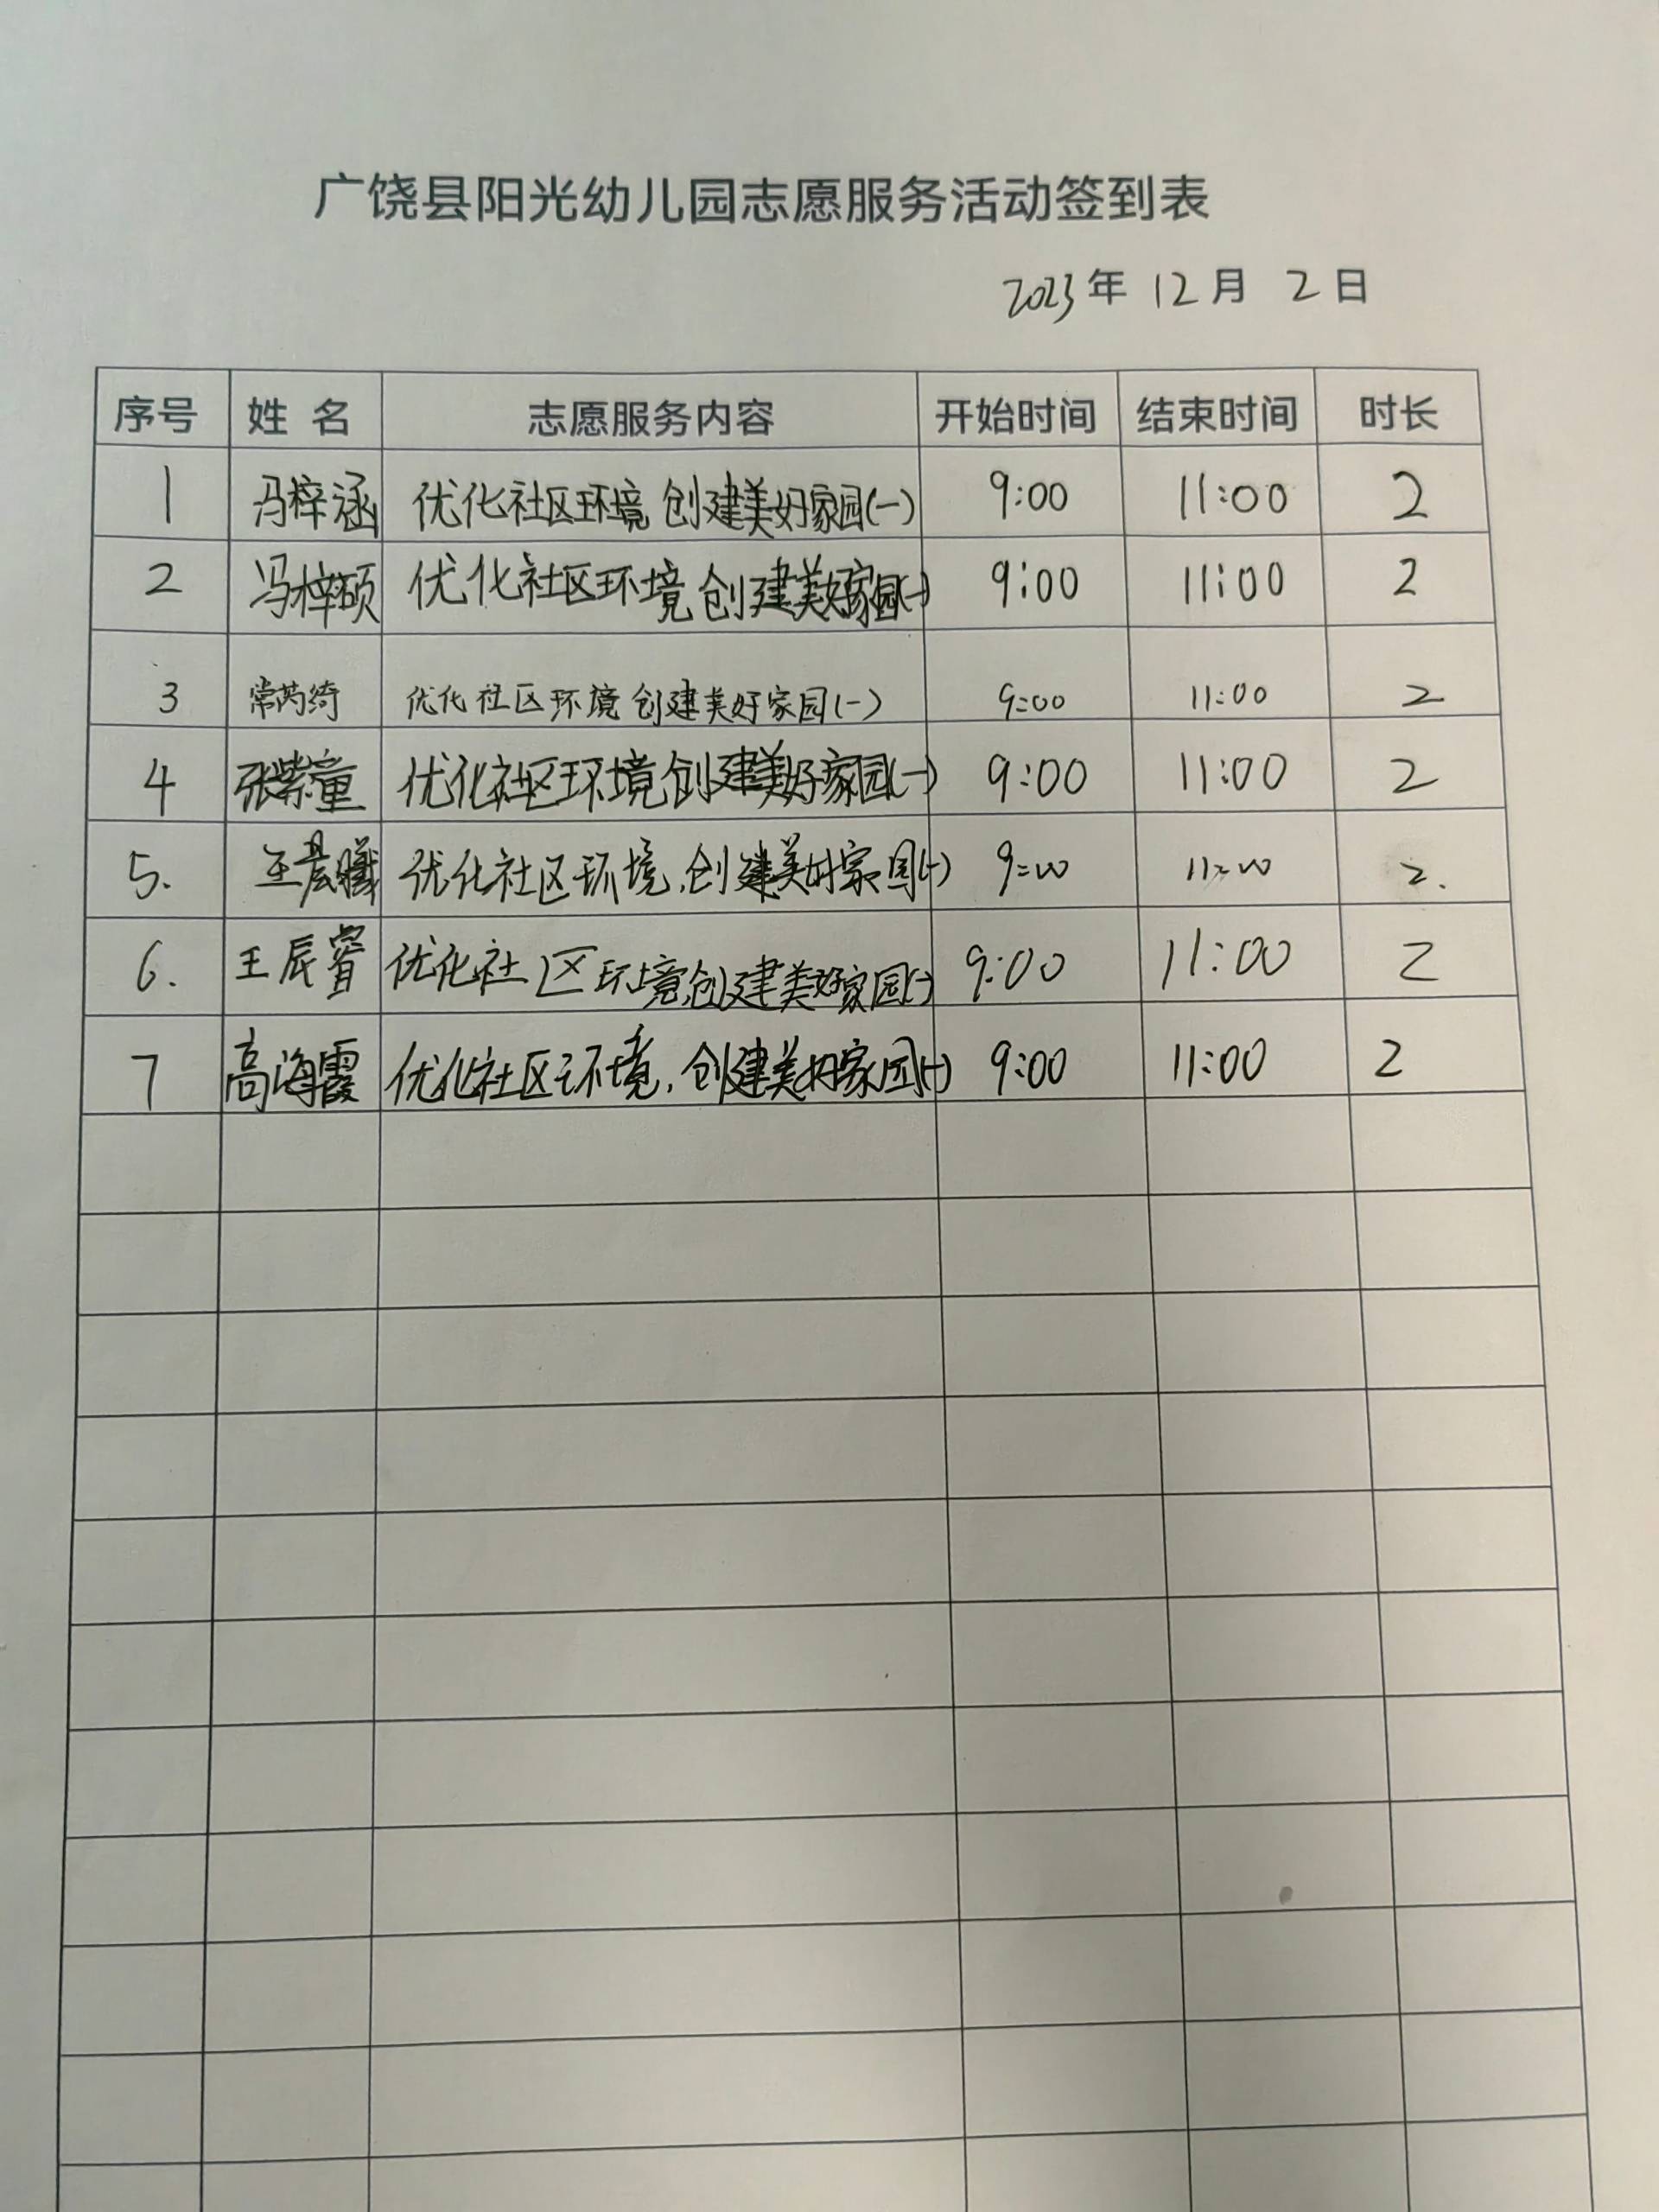 广饶县阳光幼儿园志愿服务活动签到表
2023年 12月 2日
序号 姓名 志愿服务内容 开始时间 结束时间 时长
1 冯梓涵 优化社区环境 创建美好家园(一) 9:00 11:00 2
2 冯梓硕 优化社区环境 创建美好家园(一) 9:00 11:00 2
3 常芮绮 优化社区环境 创建美好家园(一) 9:00 11:00 2
4 张紫童 优化社区环境创建美好家园(一) 9:00 11:00 2
5. 王晨曦 优化社区环境,创建美好家园(一) 9:00 11:00 2.
6. 王辰睿 优化社区环境,创建美好家园(一) 9:00 11:00 2
7 高海霞 优化社区环境,创建美好家园(一) 9:00 11:00 2